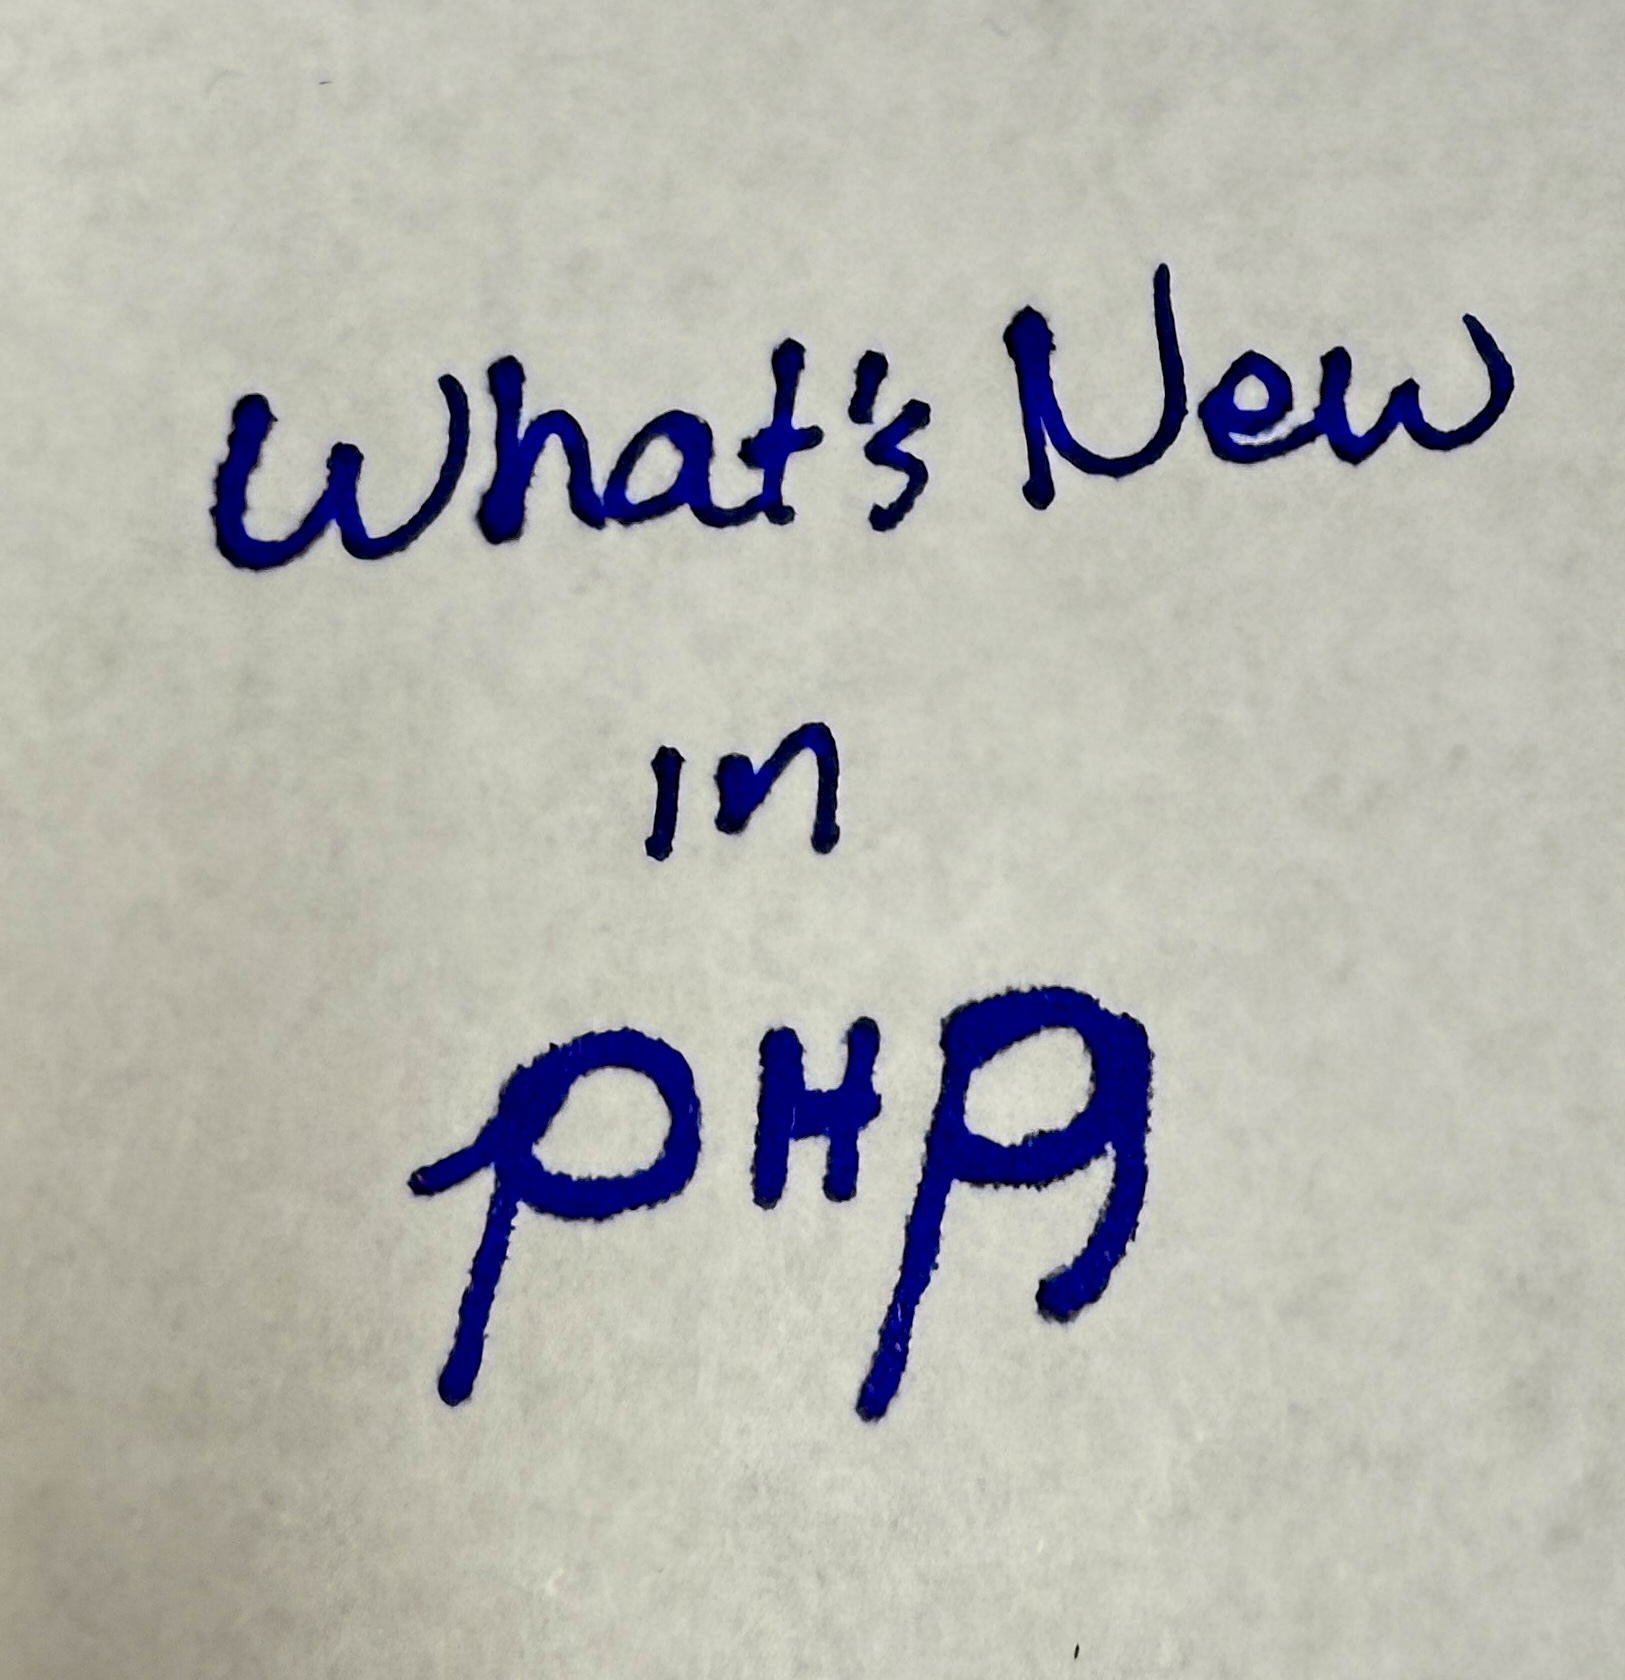 What's New
in
PHP